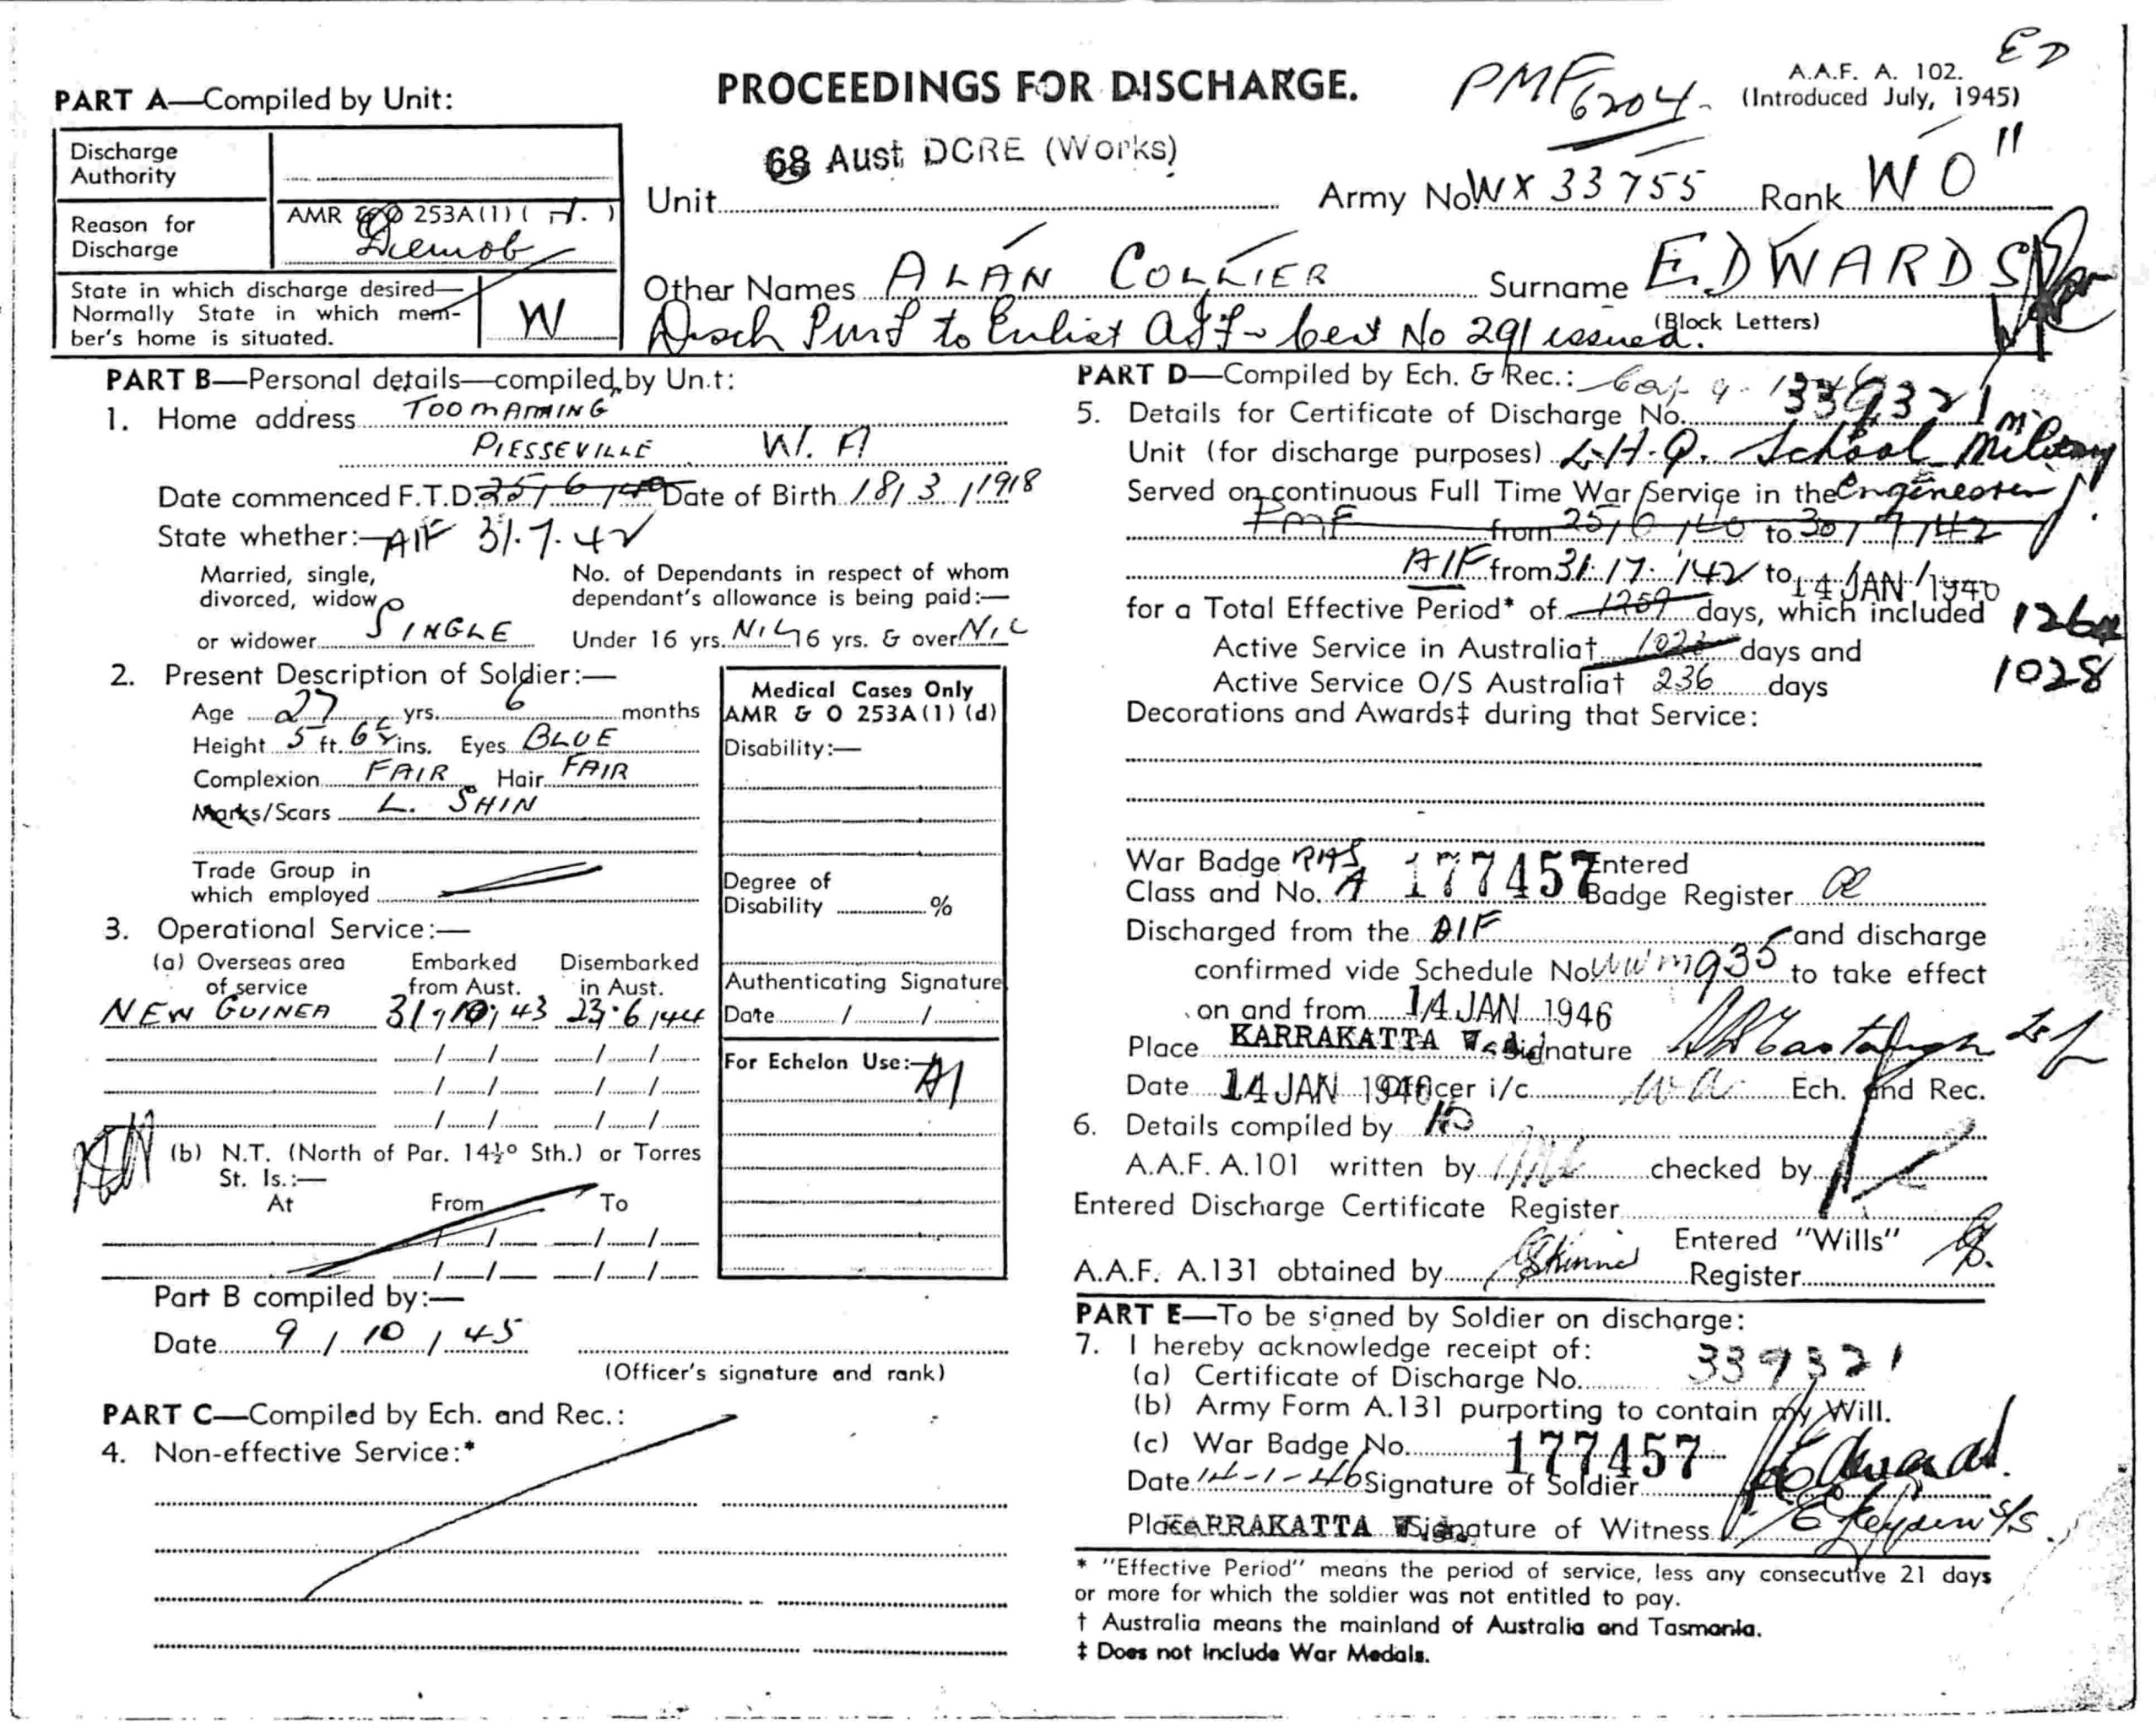 PROCEEDINGS FOR DISCHARGE.
PMF 6204
A.A.F. A. 102.
(Introduced July, 1945)
ED
PART A—Compiled by Unit:
Discharge
Authority
Reason for
Discharge
AMR & O 253A(1) ( H. )
Demob
State in which discharge desired—
Normally State in which mem-
ber's home is situated.
W
68 Aust DCRE (Works)
Unit
Army No. WX 33755 Rank WO II
Other Names ALAN COLLIER Surname EDWARDS
(Block Letters)
Disch Purp to Enlist Cert No 291 issued.
PART B—Personal details—compiled by Unit:
1. Home address TOOMAMING
PIESSEVILLE W. A
Date commenced F.T.D. 25/6/40 Date of Birth 18/3/1918
State whether:— AIF 31.7.42
Married, single,
divorced, widow
or widower SINGLE
No. of Dependants in respect of whom
dependant's allowance is being paid:—
Under 16 yrs. NIL 16 yrs. & over NIL
2. Present Description of Soldier:—
Age 27 yrs. 6 months
Height 5 ft. 6½ ins. Eyes BLUE
Complexion FAIR Hair FAIR
Marks/Scars L. SHIN
Trade Group in
which employed
3. Operational Service:—
(a) Overseas area
of service
Embarked
from Aust.
Disembarked
in Aust.
NEW GUINEA 31/10/43 23/6/44
(b) N.T. (North of Par. 14½° Sth.) or Torres
St. Is.:—
At From To
Part B compiled by:—
Date 9/10/45
(Officer's signature and rank)
Medical Cases Only
AMR & O 253A(1)(d)
Disability:—
Degree of
Disability %
Authenticating Signature
Date / /
For Echelon Use:—
A1
PART C—Compiled by Ech. and Rec.:
4. Non-effective Service:*
PART D—Compiled by Ech. & Rec.:
5. Details for Certificate of Discharge No. 339321
Unit (for discharge purposes) L.H.Q. School Military
Served on continuous Full Time War Service in the Engineering
PMF from 25/6/40 to 30/7/42
AIF from 31/7/42 to 14 JAN 1946
for a Total Effective Period* of 1259 days, which included 1264
Active Service in Australia† 1023 days and 1028
Active Service O/S Australia† 236 days
Decorations and Awards‡ during that Service:
War Badge RAS
Class and No. A 177457
Entered
Badge Register
Discharged from the AIF and discharge
confirmed vide Schedule No. WWM935 to take effect
on and from 14 JAN 1946
Place KARRAKATTA W.A. Signature
Date 14 JAN 1946 Officer i/c WA Ech. and Rec.
6. Details compiled by
A.A.F. A.101 written by checked by
Entered Discharge Certificate Register
A.A.F. A.131 obtained by Skinner
Entered "Wills"
Register
PART E—To be signed by Soldier on discharge:
7. I hereby acknowledge receipt of:
(a) Certificate of Discharge No. 339321
(b) Army Form A.131 purporting to contain my Will.
(c) War Badge No. 177457
Date 14-1-46 Signature of Soldier A C Edwards
Place KARRAKATTA W.A. Signature of Witness
* "Effective Period" means the period of service, less any consecutive 21 days
or more for which the soldier was not entitled to pay.
† Australia means the mainland of Australia and Tasmania.
‡ Does not include War Medals.